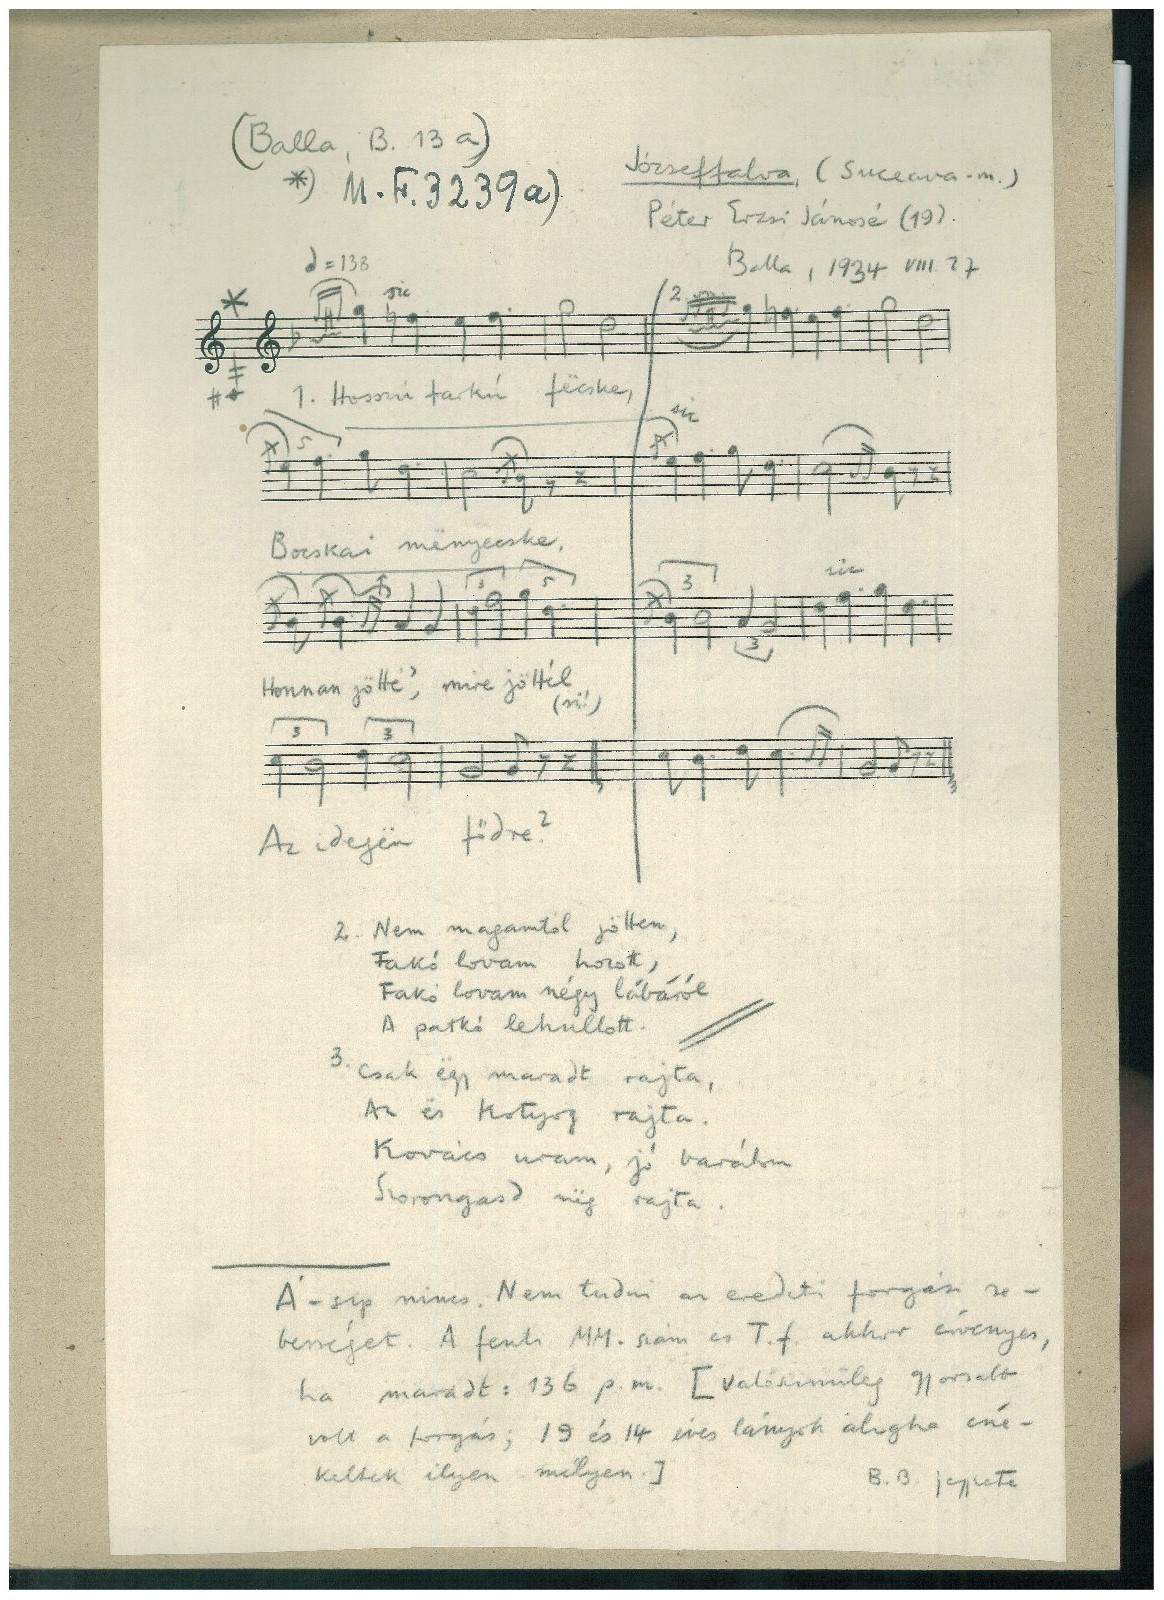 (Balla, B. 13 a)
*) M.F. 3239 a)
Józseffalva, (Suceava-m.)
Péter Erzsi Jánosé (19).
Balla, 1934 VIII. 27
= 138
sic
2.
1. Hosszú farkú fëcske,
5
sic
Bocskai mënyecske,
3
5
3
3
sic
Honnan jötté', mire jöttél
(sic!)
3
3
Az idegën födre?
2. Nem magamtól jöttem,
Fakó lovam hozott,
Fakó lovam négy lábáról
A patkó lehullott.
3. Csak ëgy maradt rajta,
Az ës kotyog rajta.
Kovács uram, jó barátom
Szorongasd mëg rajta.
Á-síp nincs. Nem tudni az eredeti forgási se-
bességet. A fenti MM. szám és T.f. akkor érvényes,
ha maradt: 136 p.m. [Valószinüleg gyorsabb
volt a forgás; 19 és 14 éves lányok aligha éne-
keltek ilyen mélyen.]
B. B. jegyzete